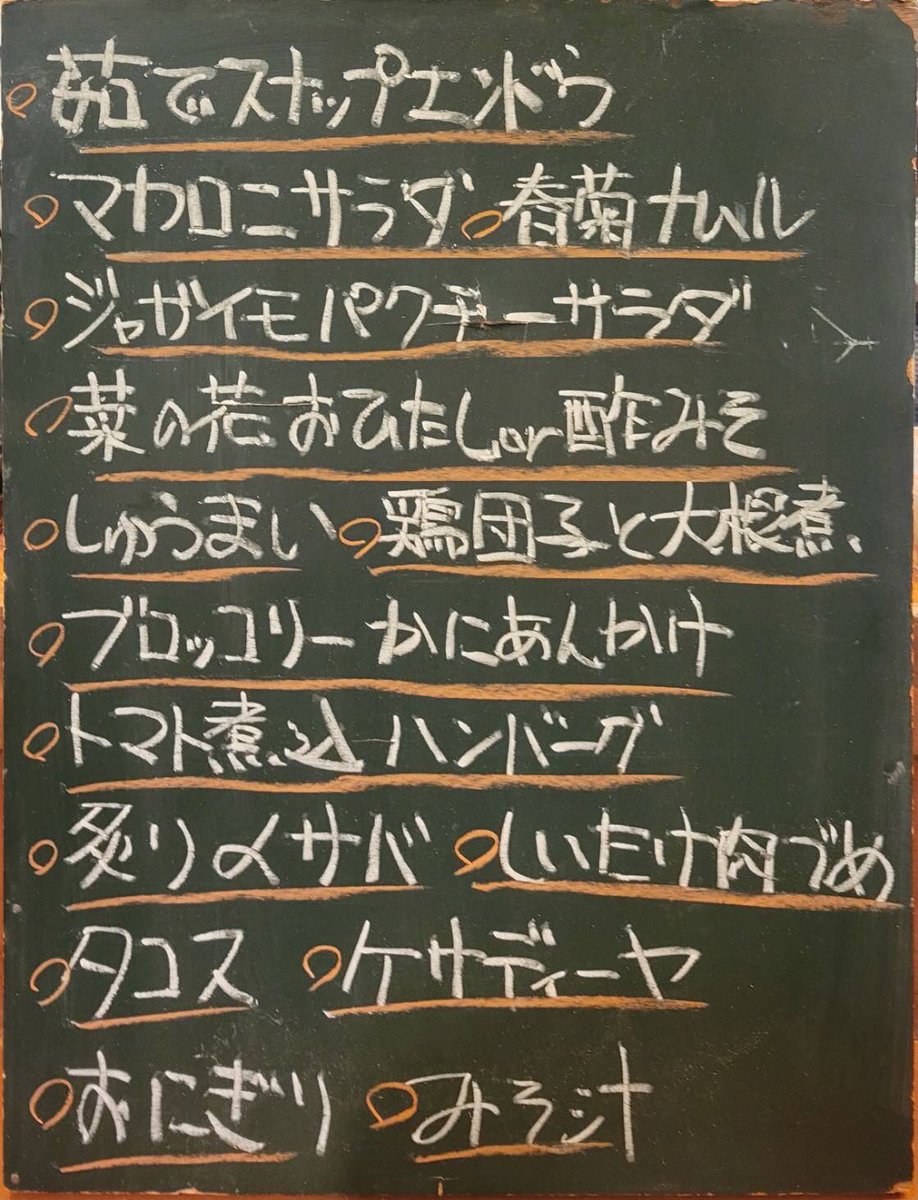 茹でスナップエンドウ
マカロニサラダ 春菊ナムル
ジャガイモパクチーサラダ
菜の花おひたしor酢みそ
しゅうまい 鶏団子と大根煮
ブロッコリーかにあんかけ
トマト煮込ハンバーグ
炙り〆サバ しいたけ肉づめ
タコス ケサディーヤ
おにぎり みそ汁